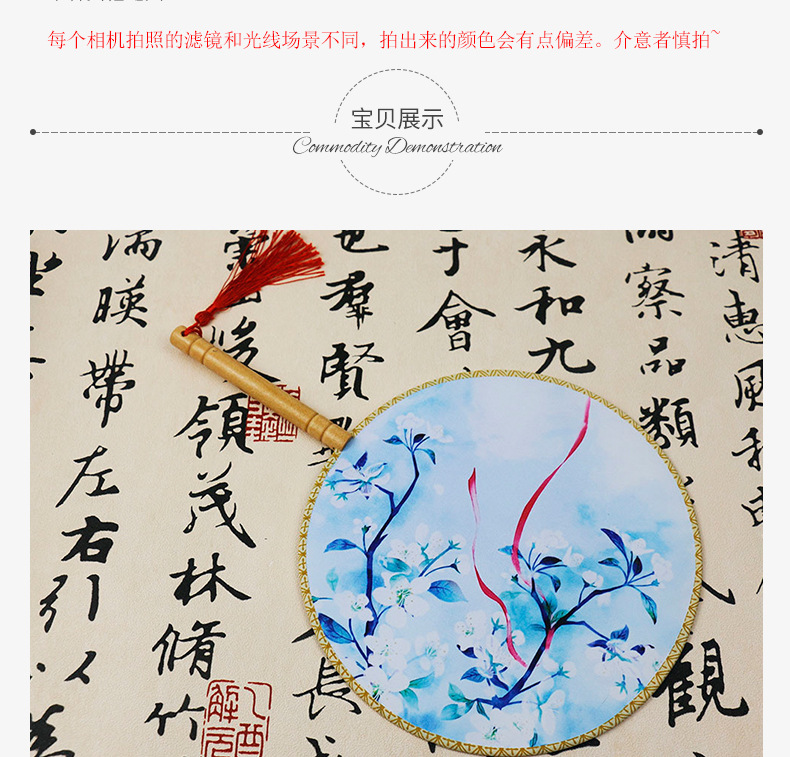 每个相机拍照的滤镜和光线场景不同，拍出来的颜色会有点偏差。介意者慎拍~
宝贝展示
Commodity Demonstration
清惠風和
察品類
觀
永和九
于會
羣賢
長
峻領茂林脩竹
湍暎帶左右引
乙酉解元